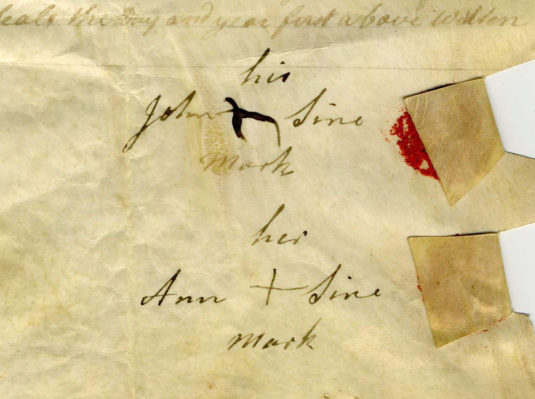 Seals the Day and year first above written
his
John + Sine
mark
her
Ann + Sine
mark